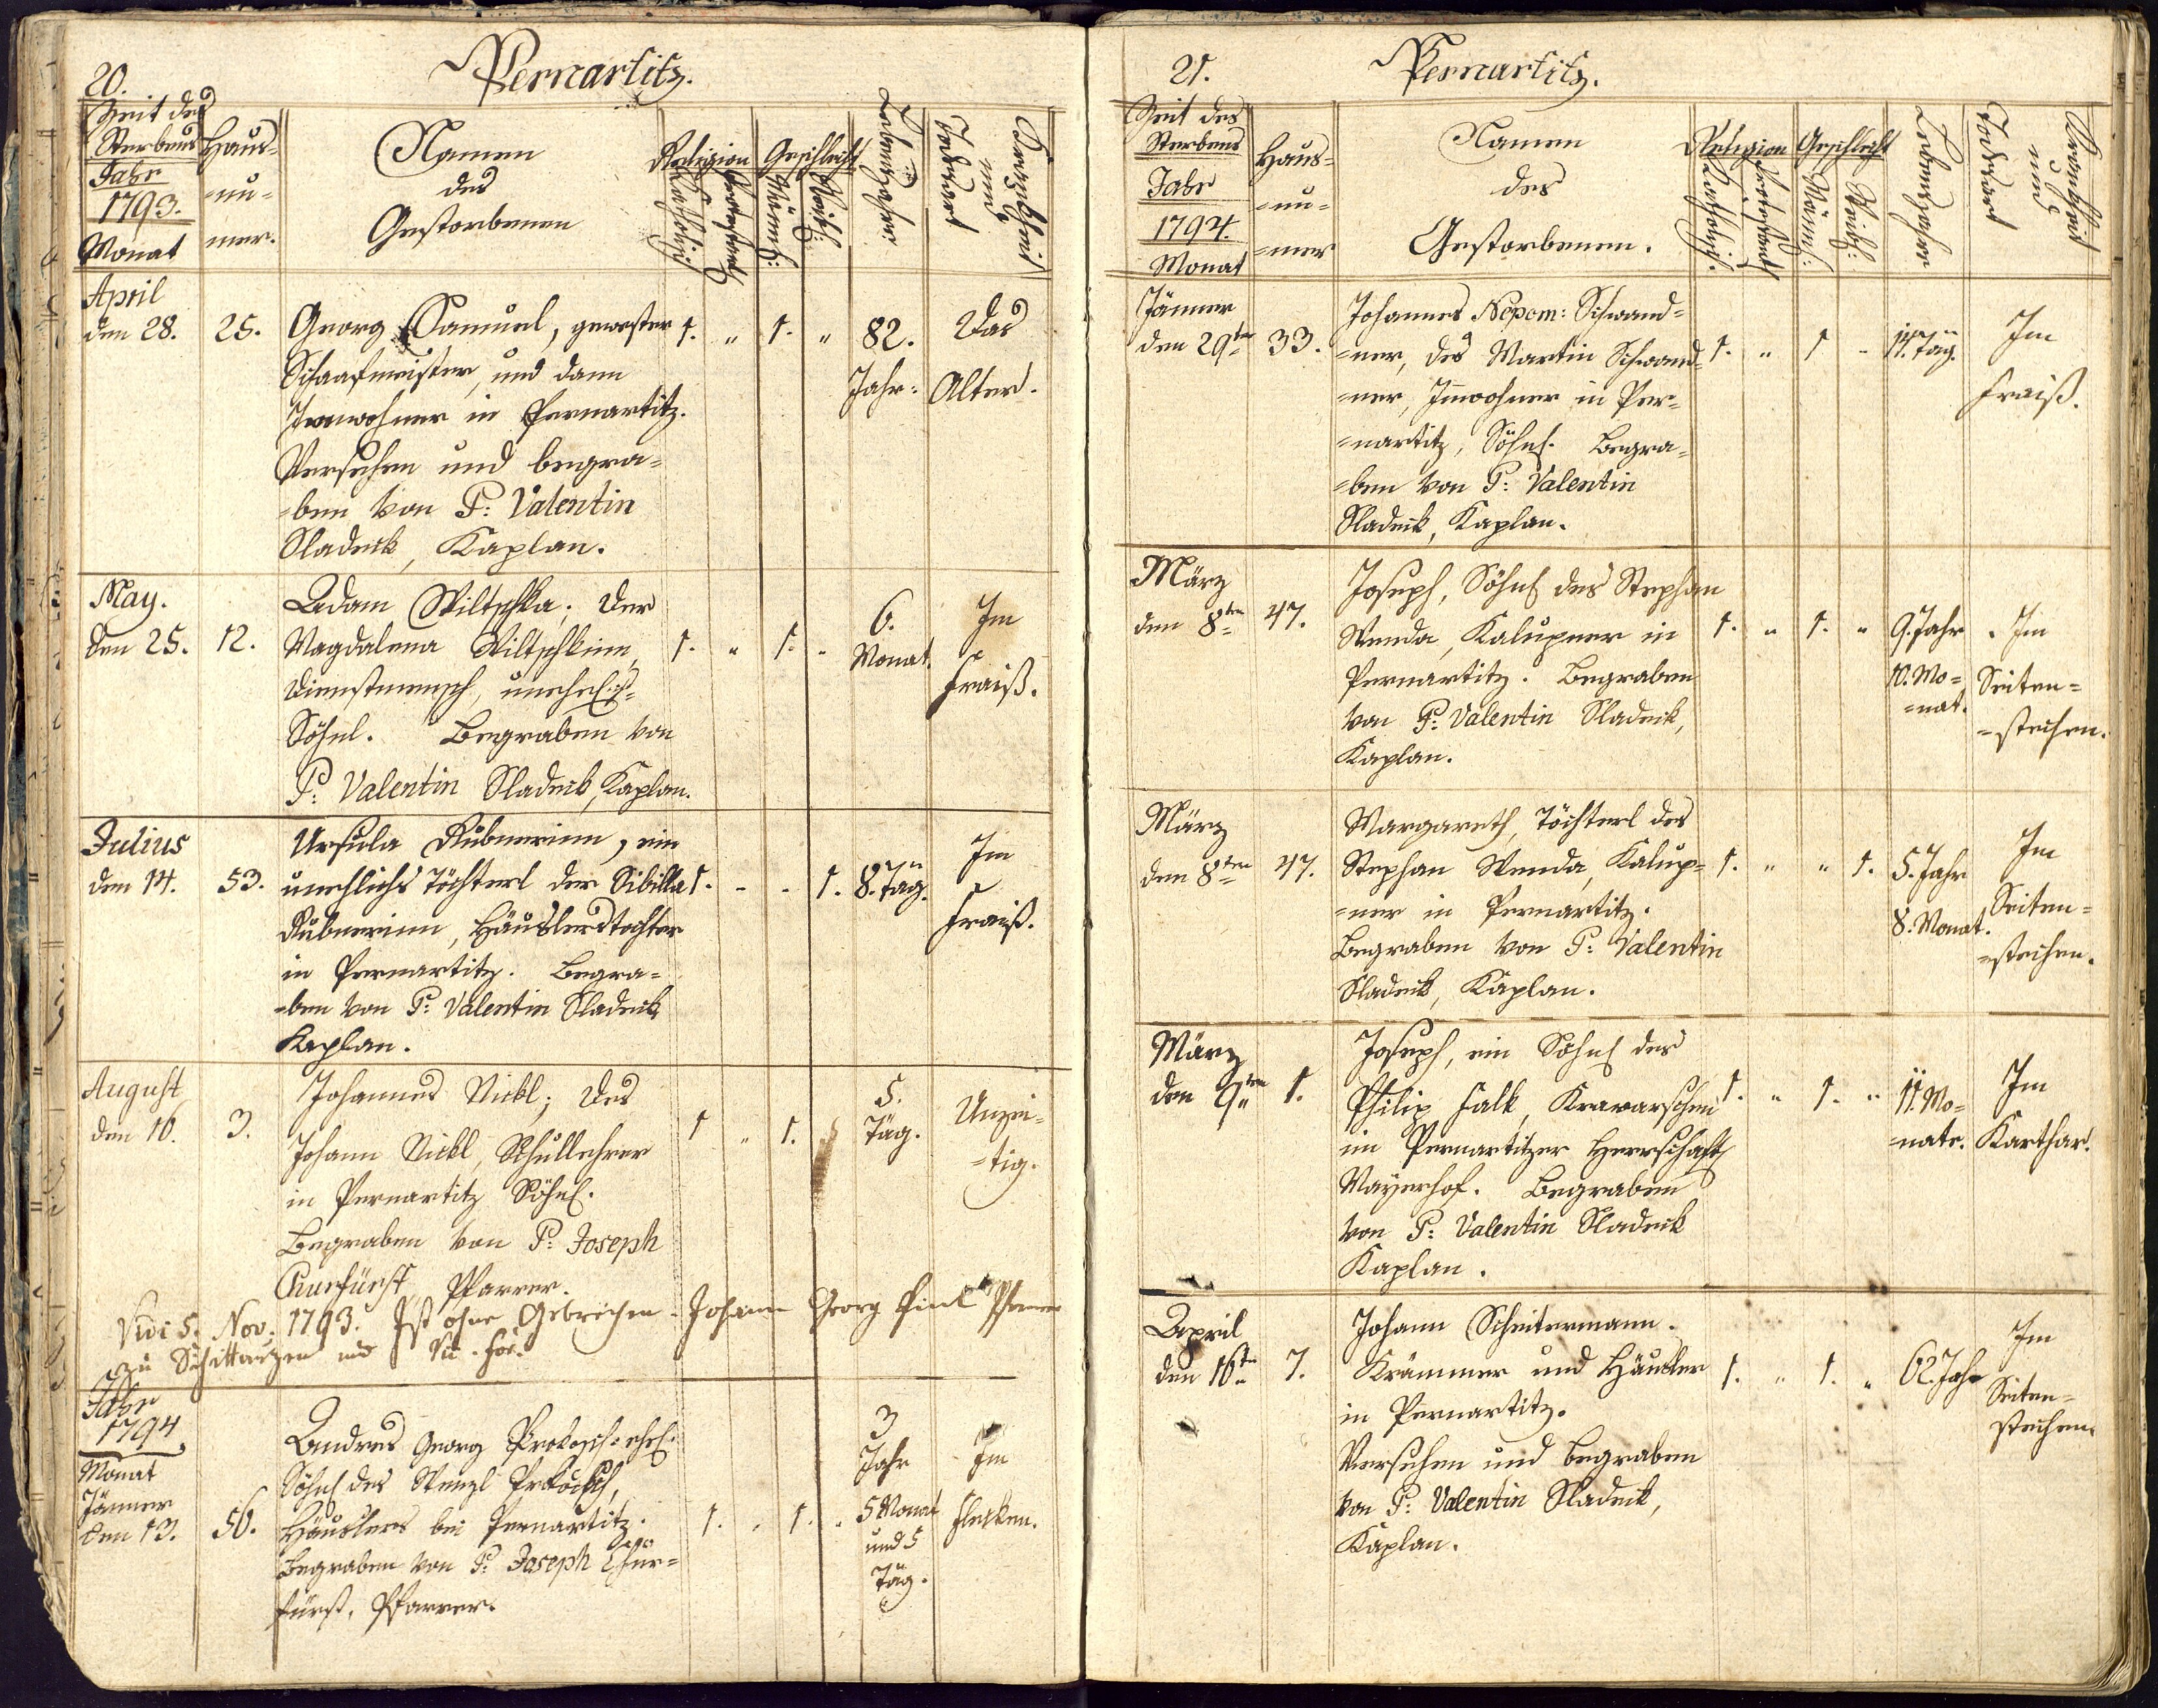 20.
Pernartitz.
Zeit des
Sterbens
Jahr
1793.
Monat
Haus-
-nu-
mer.
Namen
des
Gestorbenen
Religion
Katholisch
Protestant
Geschlecht
Männl:
Weibl:
Lebensjahre
Krankheit
und
Todesart
April
den 28.
25.
Georg Samuel, gewester
Schaafmeister, und dann
Innwohner in Pernartitz.
Versehen und begra-
-ben von P: Valentin
Sladeck, Kaplan.
1. " 1. "
82.
Jahr:
Das
Alter.
May.
den 25.
12.
Adam Wiltschka, der
Magdalena Wiltschkinn,
Dienstmensch, unehel:
Söhnl. Begraben von
P: Valentin Sladeck, Kaplan.
1. " 1. "
6.
Monat.
Im
Fraiß.
Julius
den 14.
53.
Ursula Rübnerinn, ein
unehlichs Töchterl der Sibilla
Rübnerinn, Häuslerstochter
in Pernartitz. Begra-
-ben von P: Valentin Sladeck
Kaplan.
1. - - 1.
8. Täg.
Im
Fraiß.
August
den 10.
3.
Johannes Nickl, des
Johann Nickl, Schullehrer
in Pernartitz Söhnl.
Begraben von P: Joseph
Churfürst, Pfarrer.
1 " 1.
5.
Täg.
Unzei-
-tig.
Vidi 5. Nov: 1793. Ist ohne Gebrechen - Johann Georg Pfarrer
zu und Vic. For.
Jahr
1794
Monat
Jänner
den 13.
56.
Andreas Georg Prokosch ehel.
Söhnl des Wenzl Prokosch,
Häuslers bei Pernartitz.
Begraben von P: Joseph Chur-
fürst, Pfarrer.
1. " 1. "
3
Jahr
5 Monat
und 5
Täg.
Im
Flecken.
21.
Pernartitz.
Zeit des
Sterbens
Jahr
1794.
Monat
Haus-
-nu-
-mer
Namen
des
Gestorbenen.
Religion
Katholisch.
Protestant
Geschlecht
Männl:
Weibl:
Lebensjahre
Krankheit
und
Todesart
Jänner
den 29ten
33.
Johannes Nepom: Schwand-
-ner, des Martin Schwand-
-ner, Innwohner in Per-
-nartitz, Söhnl. Begra-
-ben von P: Valentin
Sladeck, Kaplan.
1. " 1 -
14. Täg.
Im
Fraiß.
März
den 8ten
47.
Joseph, Söhnl des Stephan
Wenda, Kalupner in
Pernartitz. Begraben
von P: Valentin Sladeck,
Kaplan.
1. " 1. "
9. Jahr
10. Mo-
-nat.
Im
Seiten-
-stechen.
März
den 8ten
47.
Margareth, Töchterl des
Stephan Wenda, Kalup-
-ner in Pernartitz.
Begraben von P: Valentin
Sladeck, Kaplan.
1. " " 1.
5. Jahr
8. Monat.
Im
Seiten-
-stechen.
März
den 9ten
1.
Joseph, ein Söhnl des
Philip Falk, Krawarschen
im Pernartitzer Herrschaftl
Mayerhof. Begraben
von P: Valentin Sladeck
Kaplan.
1. " 1. "
11. Mo-
-nate.
Im
Karthar.
April
den 16ten
7.
Johann Scheitermann.
Krämmer und Häusler
in Pernartitz.
Versehen und begraben
von P: Valentin Sladeck,
Kaplan.
1. " 1. "
62. Jahr
Im
Seiten-
stechen.